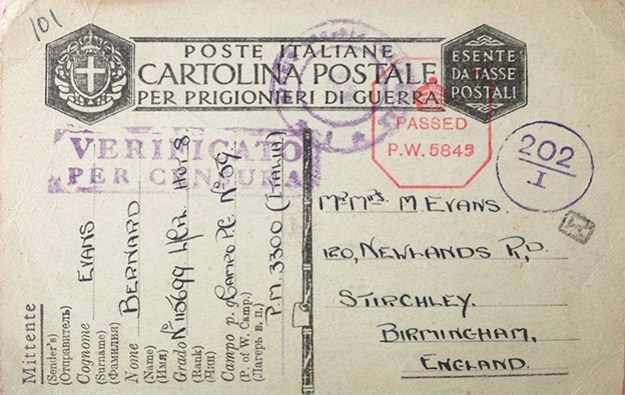 101
POSTE ITALIANE
CARTOLINA POSTALE
PER PRIGIONIERI DI GUERRA
ESENTE
DA TASSE
POSTALI
PASSED
P.W. 5845
VERIFICATO
PER CENSURA
202
I
Mittente
(Sender's)
(Отправитель)
Cognome EVANS
(Surname)
(Фамилия)
Nome BERNARD
(Name)
(Имя)
Grado No 115699 HUT 8
(Rank)
(Чин)
Campo p. g. CAMPO P.G. No 59
(P. of W. Camp.)
(Лагерь в. п.)
P.M. 3300 (ITALIA)
Mr Mrs M. EVANS.
120, NEWLANDS RD.
STIRCHLEY.
BIRMINGHAM,
ENGLAND.